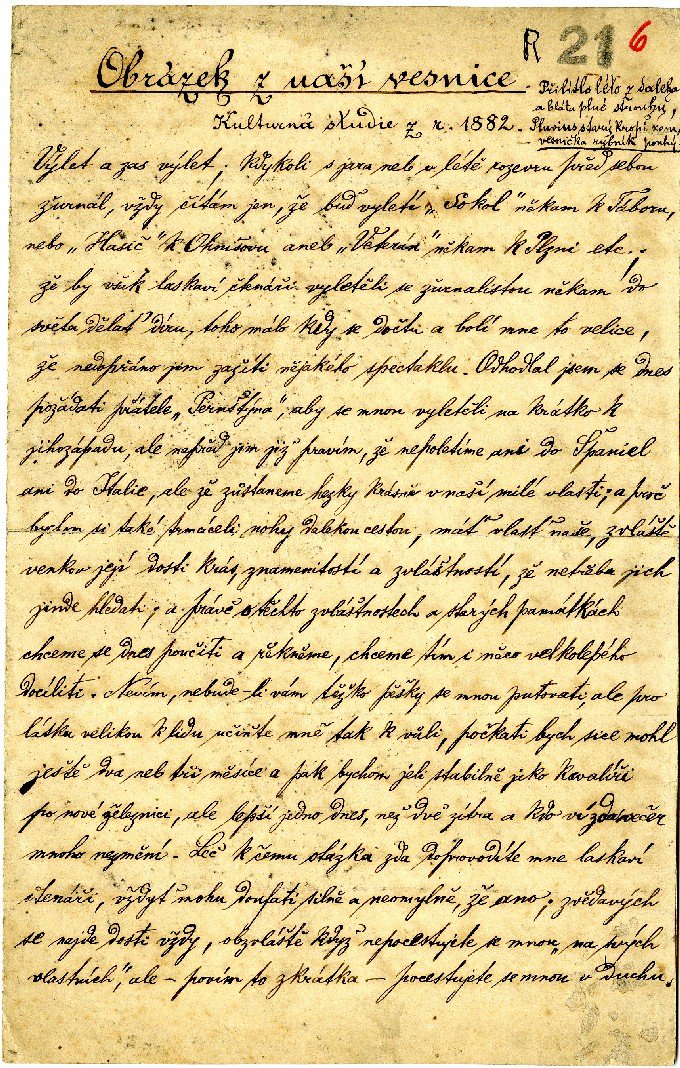 R 21 6
Obrázek z naší vesnice.
Kulturná studie z r. 1882.
Přilítlo léto z daleka
a bláta plné strouhy,
Pluvius starý kropí zem,
vesnička rybník pouhý.
Výlet a zas výlet; kdykoli s jara neb v létě rozevru před sebou
žurnál, vždy čítám jen, že buď vyletí „Sokol" někam k Táboru,
nebo „Hasič" k Ohnišovu aneb „Veterán" někam k Plzni etc.;
že by však laskaví čtenáři vyletěli se žurnalistou někam do
světa dělat díru, toho málo kdy se dočtu a bolí mne to velice,
že nedopřáno jem zažíti nějakého spectaklu. Odhodlal jsem se dnes
požádati přátele „Pernštýna", aby se mnou vyletěli na krátko k
jihozápadu, ale napřed jim již pravím, že nepoletíme ani do Španiel
ani do Italie, ale že zůstaneme hezky krásně v naší milé vlasti; a proč
bychom si také trmáceli nohy dalekou cestou, máť vlasť naše, zvláště
venkov její dosti krás, znamenitostí a zvláštností, že netřeba jich
jinde hledati; a právě o těchto zvláštnostech a starých památkách
chceme se dnes poučiti a řekněme, chceme tím i něco velkolepého
docíliti. Nevím, nebude-li vám těžko pěšky se mnou putovati, ale pro
lásku velikou k lidu učiňte mně tak k vůli, počkati bych sice mohl
ještě dva neb tři měsíce a pak bychom jeli stabilně jako kavalíři
po nové železnici, ale lepší jedno dnes, než dvě zítra a kdo ví zda večer
mnoho nezmění. Leč k čemu otázka zda doprovodíte mne laskaví
čtenáři, vždyť mohu doufati silně a neomylně, že ano; zvědavých
se najde dosti vždy, obzvláště když nepocestujete se mnou „na svých
vlastních", ale – povím to zkrátka – pocestujete se mnou v duchu.